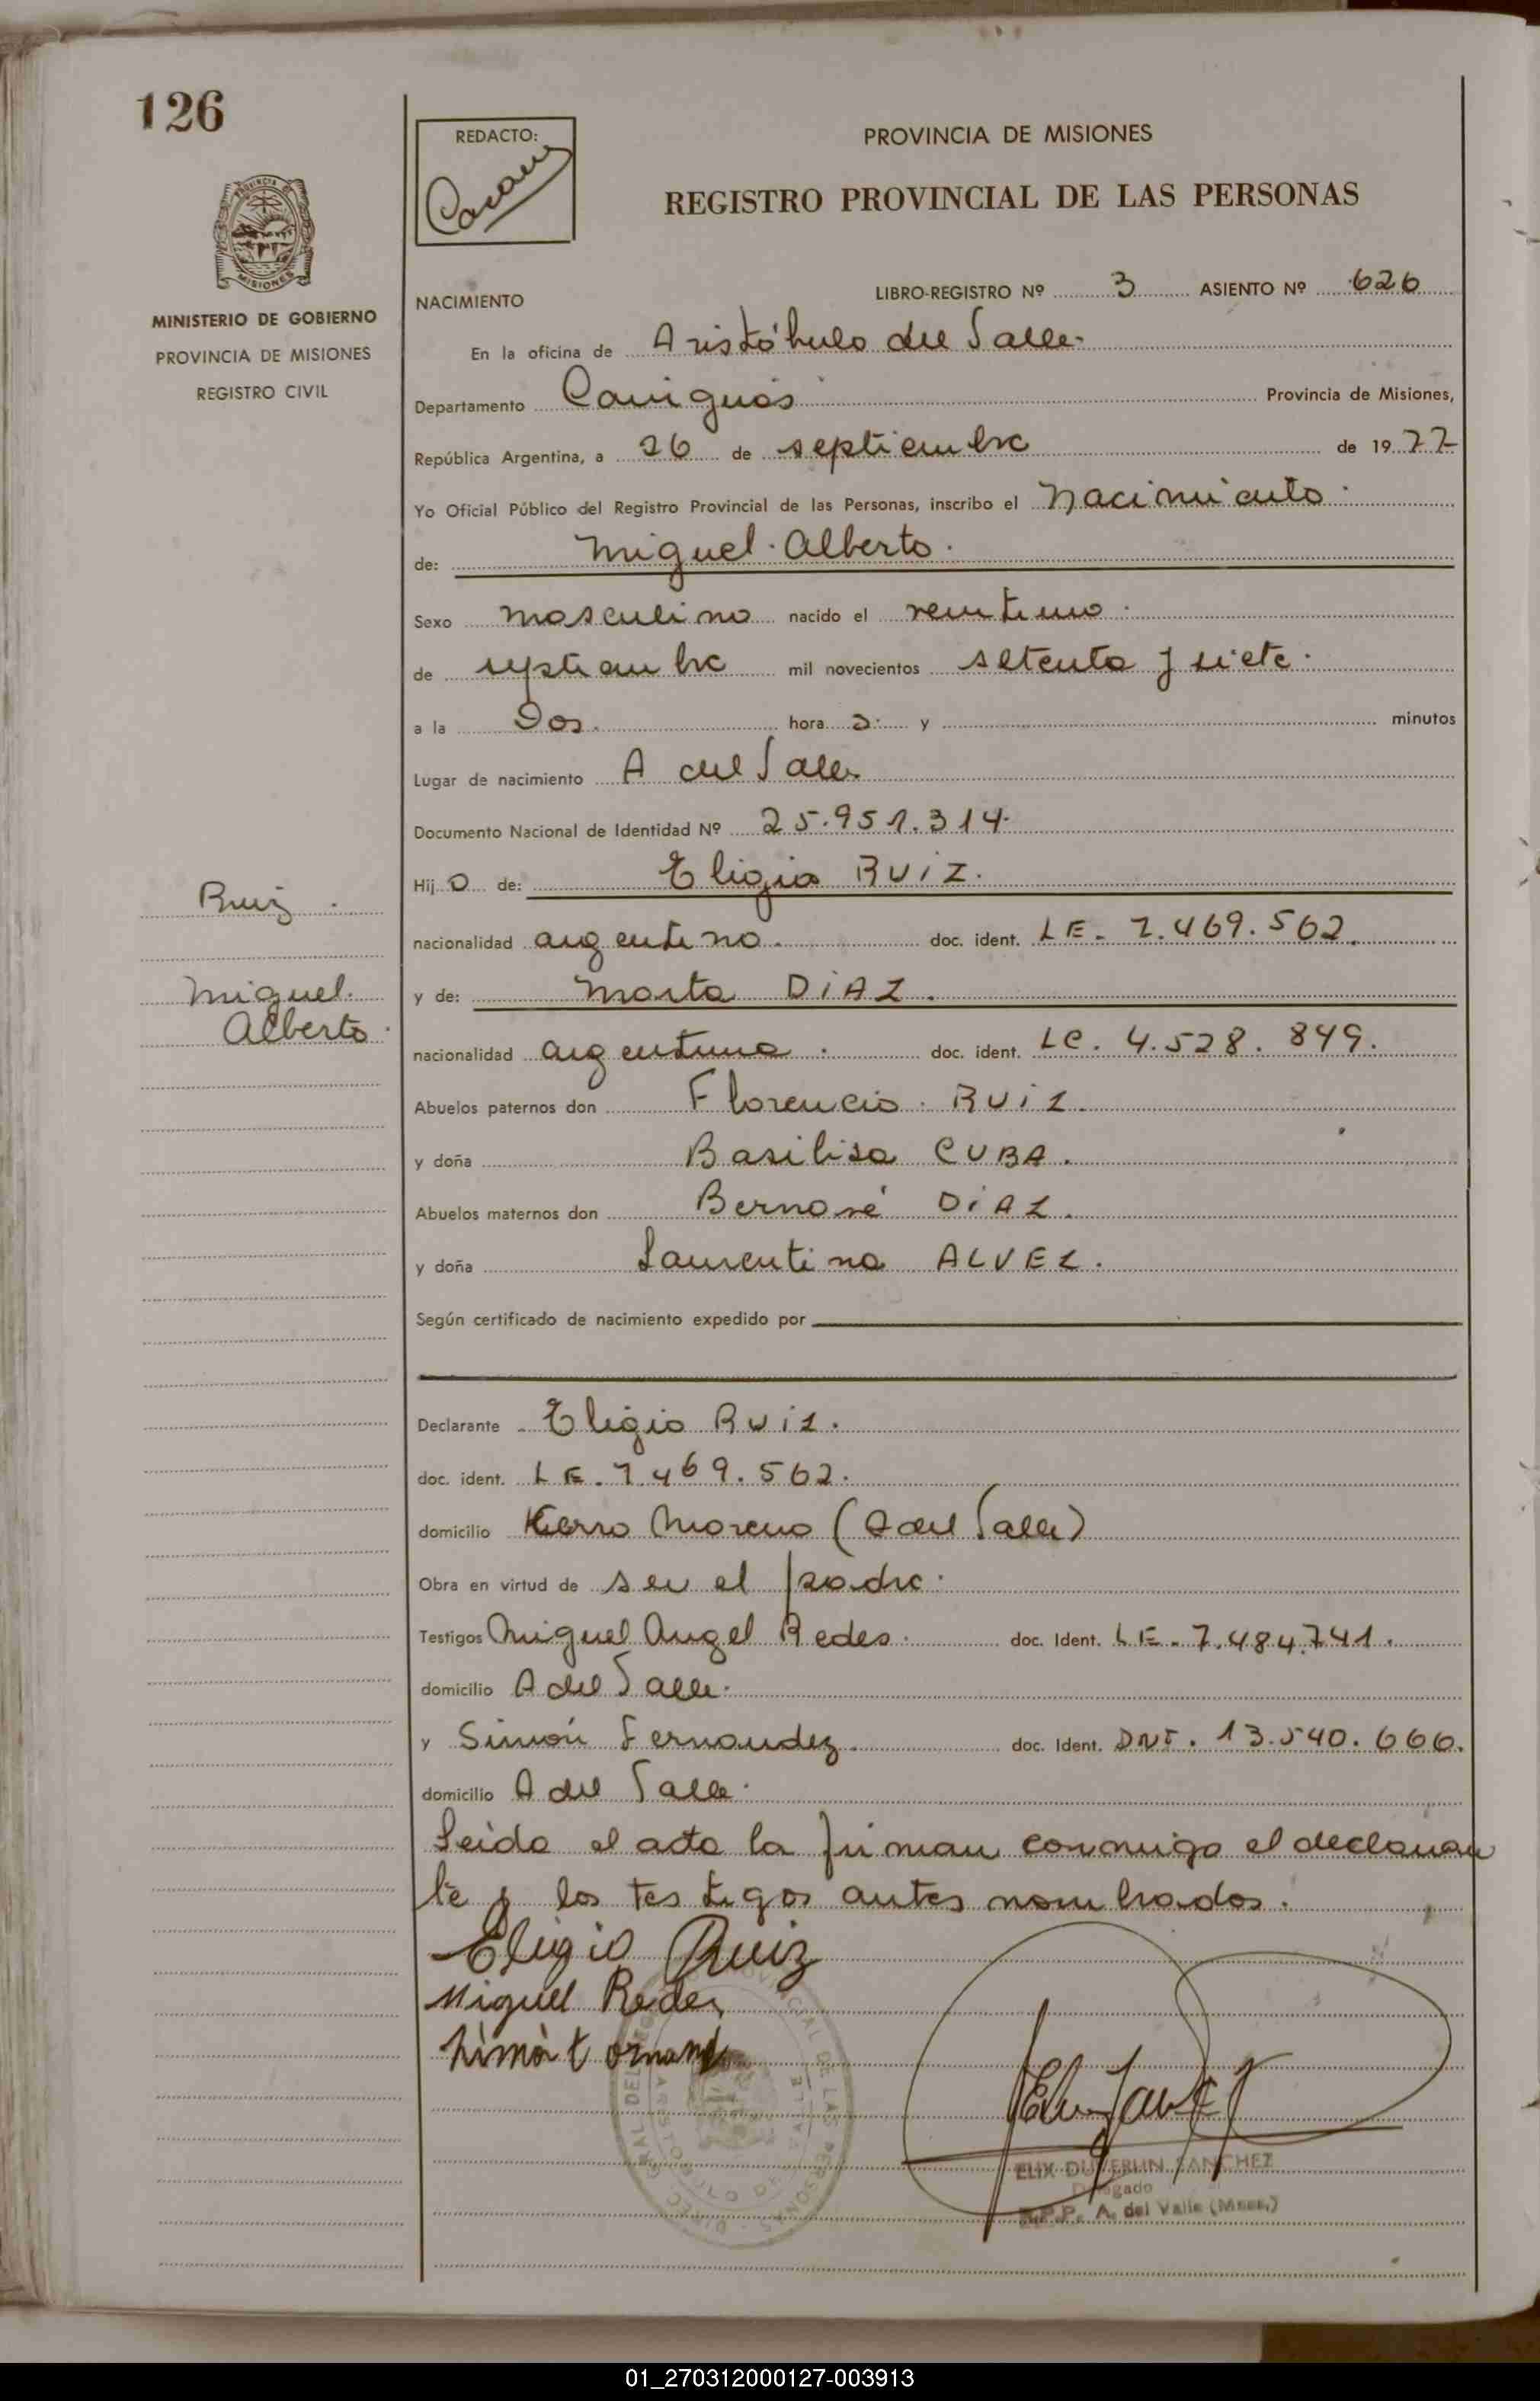 126
REDACTO:
PROVINCIA DE MISIONES
REGISTRO PROVINCIAL DE LAS PERSONAS
PROVINCIA DE
MISIONES
MINISTERIO DE GOBIERNO
PROVINCIA DE MISIONES
REGISTRO CIVIL
NACIMIENTO
LIBRO-REGISTRO Nº 3 ASIENTO Nº 626
En la oficina de Aristóbulo del Valle
Departamento Cainguás Provincia de Misiones,
República Argentina, a 26 de septiembre de 1977
Yo Oficial Público del Registro Provincial de las Personas, inscribo el Nacimiento
de: Miguel Alberto.
Sexo masculino nacido el veintiuno
de septiembre mil novecientos setenta y siete.
a la Dos hora s y minutos
Lugar de nacimiento A del Valle
Documento Nacional de Identidad Nº 25.951.314
Hij o de: Eligio RUIZ.
nacionalidad argentino. doc. ident. LE. 7.469.562.
Ruiz
Miguel
Alberto
y de: Marta DIAZ.
nacionalidad argentina doc. ident. LC. 4.528.849.
Abuelos paternos don Florencio RUIZ.
y doña Basilisa CUBA.
Abuelos maternos don DIAZ.
y doña Laurentina ALVEZ.
Según certificado de nacimiento expedido por
Declarante Eligio RUIZ.
doc. ident. LE. 7.469.562.
domicilio Cerro Moreno (A del Valle)
Obra en virtud de ser el padre.
Testigos Miguel Angel Redes. doc. Ident. LE. 7.484.741.
domicilio A del Valle.
y Simón Fernandez. doc. Ident. DNI. 13.540.666.
domicilio A del Valle.
Leida el acta la firman conmigo el declaran
te y los testigos antes nombrados.
Eligio Ruiz
Miguel Redes
ELIX DUVERLIN SANCHEZ
Delegado
R.P.P. A. del Valle (Mnes.)
01_270312000127-003913